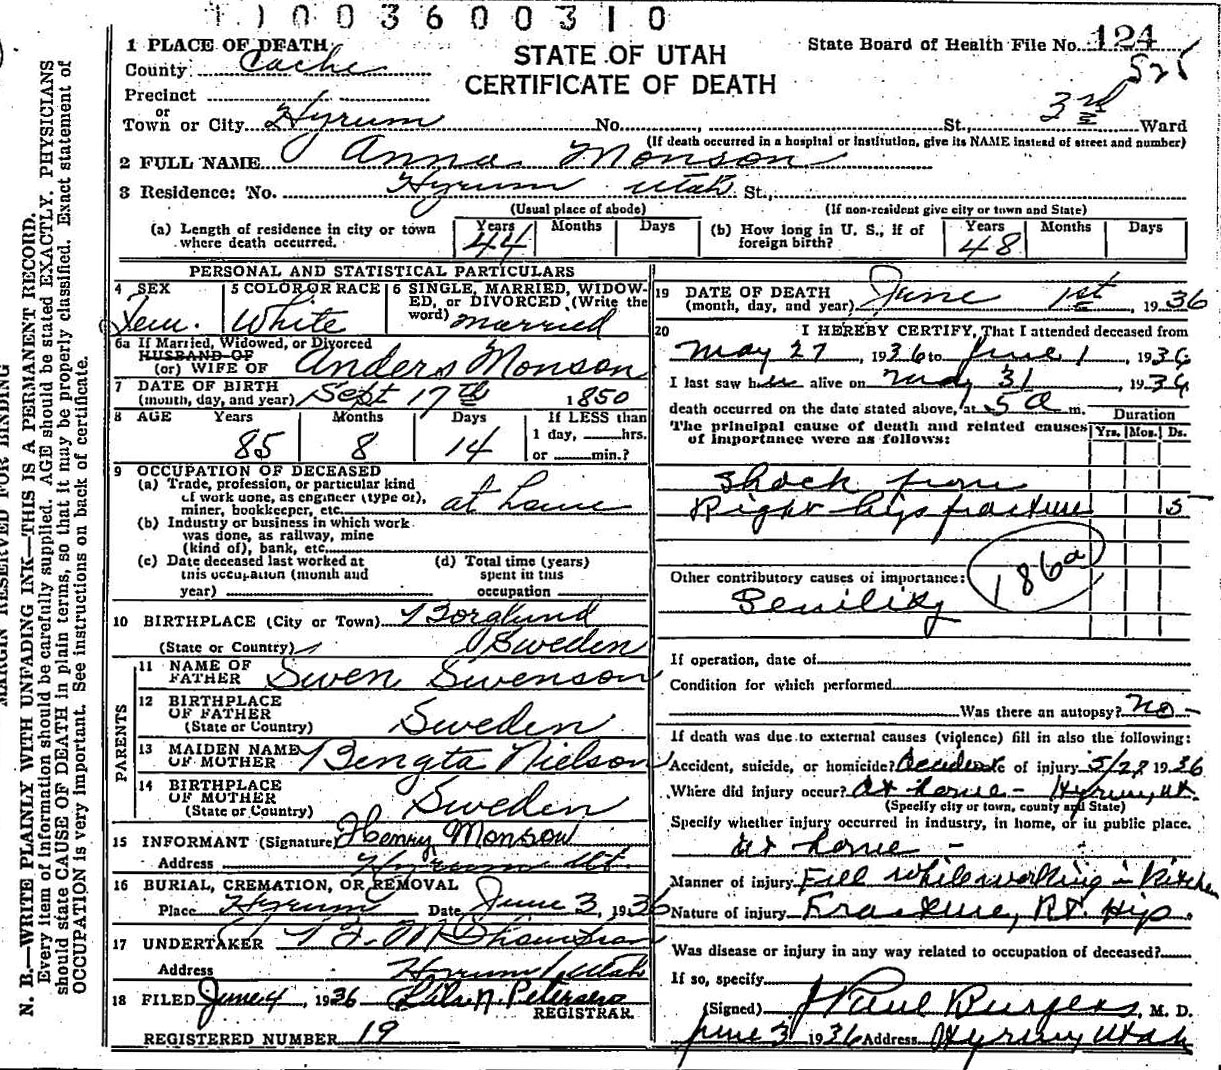 1 1 0 0 3 6 0 0 3 1 0
1 PLACE OF DEATH
STATE OF UTAH
CERTIFICATE OF DEATH
State Board of Health File No. 124
525
County Cache
Precinct
or
Town or City Hyrum No. St., 3rd Ward
(If death occurred in a hospital or institution, give its NAME instead of street and number)
2 FULL NAME Anna Monson
3 Residence: No. Hyrum Utah St.,
(Usual place of abode) (If non-resident give city or town and State)
(a) Length of residence in city or town where death occurred. Years 44 Months Days
(b) How long in U. S., if of foreign birth? Years 48 Months Days
PERSONAL AND STATISTICAL PARTICULARS
4 SEX Fem.
5 COLOR OR RACE White
6 SINGLE, MARRIED, WIDOWED, or DIVORCED (Write the word) married
6a If Married, Widowed, or Divorced
HUSBAND OF
(or) WIFE OF Anders Monson
7 DATE OF BIRTH
(month, day, and year) Sept 17th 1850
8 AGE Years 85 Months 8 Days 14
If LESS than
1 day, hrs.
or min.?
9 OCCUPATION OF DECEASED
(a) Trade, profession, or particular kind
of work done, as engineer (type of),
miner, bookkeeper, etc. at home
(b) Industry or business in which work
was done, as railway, mine
(kind of), bank, etc.
(c) Date deceased last worked at
this occupation (month and
year)
(d) Total time (years)
spent in this
occupation
10 BIRTHPLACE (City or Town) Borglund
(State or Country) Sweden
PARENTS
11 NAME OF FATHER Swen Swenson
12 BIRTHPLACE OF FATHER
(State or Country) Sweden
13 MAIDEN NAME OF MOTHER Bengta Nielson
14 BIRTHPLACE OF MOTHER
(State or Country) Sweden
15 INFORMANT (Signature) Henry Monson
Address Hyrum Ut.
16 BURIAL, CREMATION, OR REMOVAL
Place Hyrum Date June 3, 1936
17 UNDERTAKER
Address Hyrum Utah
18 FILED June 4, 1936 Lila N. Petersen
REGISTRAR
REGISTERED NUMBER 19
19 DATE OF DEATH
(month, day, and year) June 1st, 1936
20 I HEREBY CERTIFY, That I attended deceased from
May 27, 1936 to June 1, 1936
I last saw her alive on May 31, 1936
death occurred on the date stated above, at 5 a m.
The principal cause of death and related causes
of importance were as follows:
Duration
Yrs. Mos. Ds.
Shock from
Right hip fracture 5
186a
Other contributory causes of importance:
Senility
If operation, date of
Condition for which performed
Was there an autopsy? no -
If death was due to external causes (violence) fill in also the following:
Accident, suicide, or homicide? Accident of injury 5/27 1936
Where did injury occur? At home - Hyrum, Ut.
(Specify city or town, county and State)
Specify whether injury occurred in industry, in home, or in public place.
at home -
Manner of injury Fell while working in Kitchen
Nature of injury Fracture, Rt. Hip.
Was disease or injury in any way related to occupation of deceased?
If so, specify
(Signed) J Paul Burgess, M. D.
June 3 1936 Address Hyrum, Utah
MARGIN RESERVED FOR BINDING
N. B.—WRITE PLAINLY WITH UNFADING INK—THIS IS A PERMANENT RECORD.
Every item of information should be carefully supplied. AGE should be stated EXACTLY. PHYSICIANS
should state CAUSE OF DEATH in plain terms, so that it may be properly classified. Exact statement of
OCCUPATION is very important. See instructions on back of certificate.